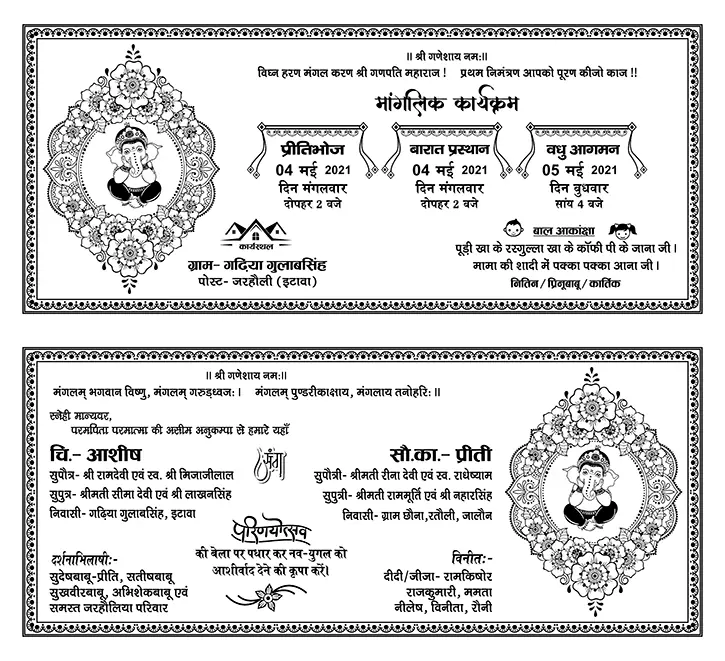 ॥ श्री गणेशाय नम:॥
विघ्न हरण मंगल करण श्री गणपति महाराज ! प्रथम निमंत्रण आपको पूरण कीजो काज !!
मांगलिक कार्यक्रम
प्रीतिभोज
04 मई 2021
दिन मंगलवार
दोपहर 2 बजे
बारात प्रस्थान
04 मई 2021
दिन मंगलवार
दोपहर 2 बजे
वधु आगमन
05 मई 2021
दिन बुधवार
सांय 4 बजे
कार्यस्थल
ग्राम- गढ़िया गुलाबसिंह
पोस्ट- जरहौली (इटावा)
बाल आकांक्षा
पूड़ी खा के रसगुल्ला खा के कॉफी पी के जाना जी ।
मामा की शादी में पक्का पक्का आना जी ।
नितिन / प्रिनूबाबू / कार्तिक
॥ श्री गणेशाय नम:॥
मंगलम् भगवान विष्णु, मंगलम् गरुड़ध्वज: । मंगलम् पुण्डरीकाक्षाय, मंगलाय तनोहरि: ॥
स्नेही मान्यवर,
परमपिता परमात्मा की असीम अनुकम्पा से हमारे यहाँ
चि.- आशीष
सुपौत्र- श्री रामदेवी एवं स्व. श्री मिजाजीलाल
सुपुत्र- श्रीमती सीमा देवी एवं श्री लाखनसिंह
निवासी- गढ़िया गुलाबसिंह, इटावा
संग
सौ.का.- प्रीती
सुपौत्री- श्रीमती रीना देवी एवं स्व. राधेष्याम
सुपुत्री- श्रीमती राममूर्ति एवं श्री नहारसिंह
निवासी- ग्राम छौना,रतौली, जालौन
परिणयोत्सव
की बेला पर पधार कर नव-युगल को
आशीर्वाद देने की कृपा करें।
दर्शनाभिलाषी:-
सुदेषबाबू-प्रीति, सतीषबाबू
सुखवीरबाबू, अभिशेकबाबू एवं
समस्त जरहौलिया परिवार
विनीत:-
दीदी/जीजा- रामकिषोर
राजकुमारी, ममता
नीलेष, विनीता, रौनी